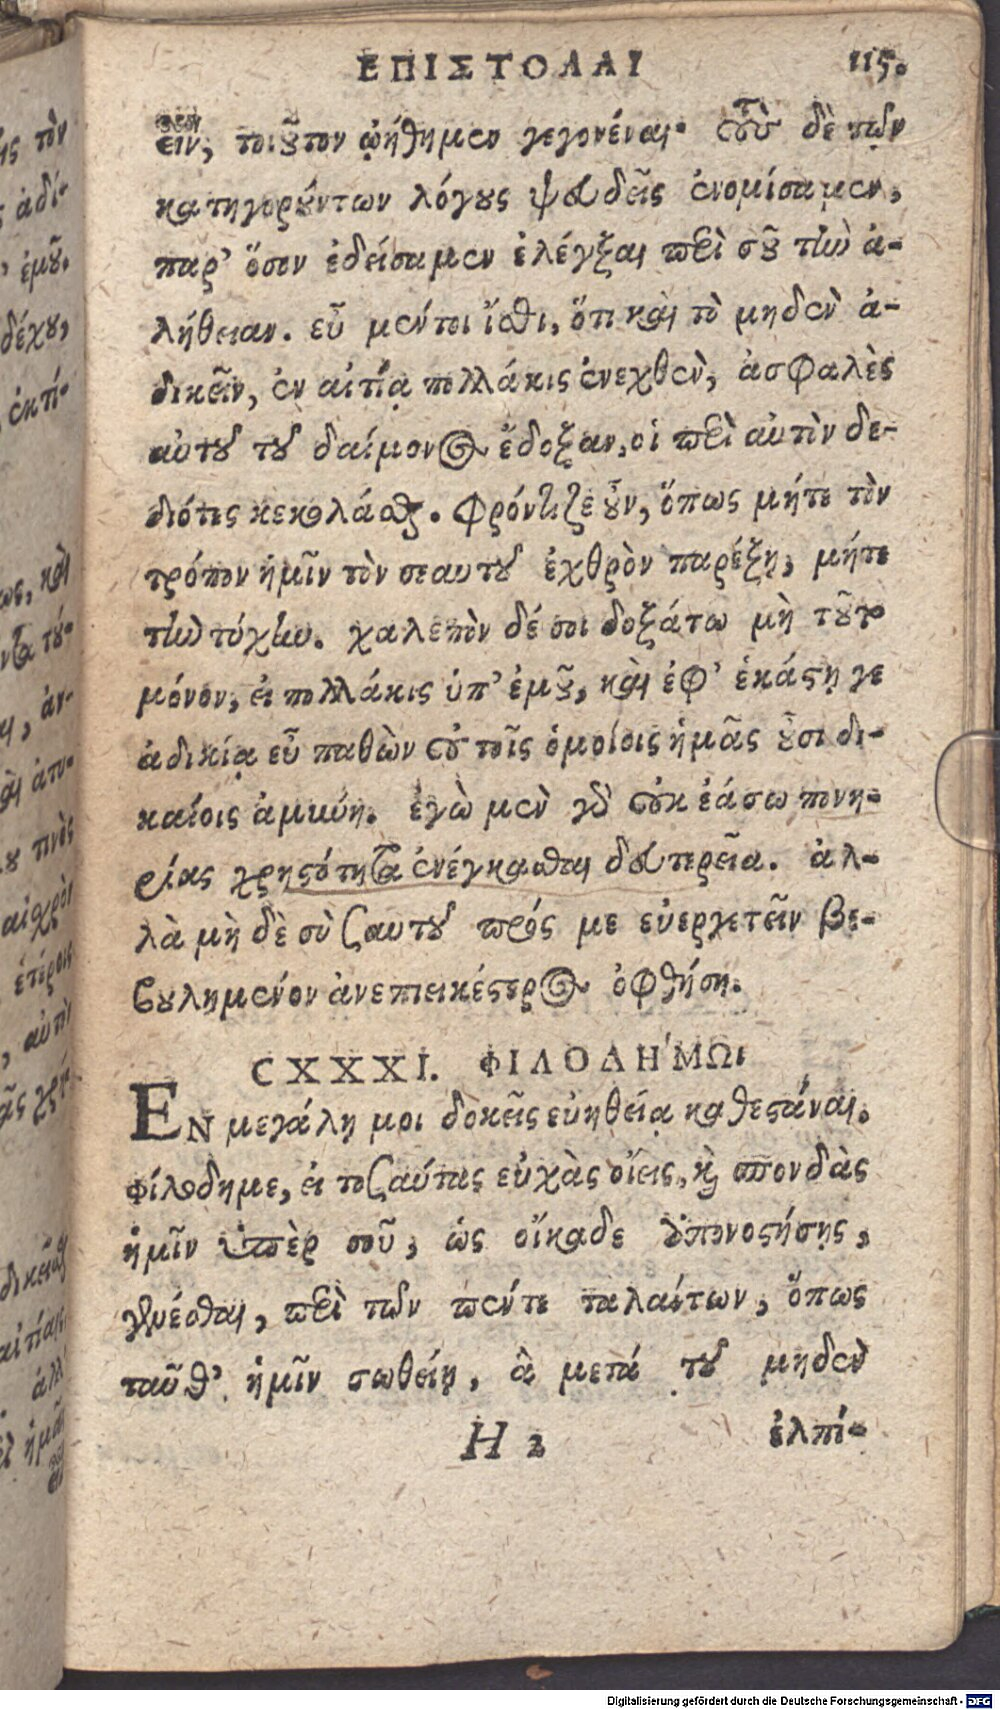 ΕΠΙΣΤΟΛΑΙ 115.
τοιοῦτον ᾠήθημεν γεγονέναι· δὲ τῶν
κατηγορούντων λόγους ψευδεῖς ἐνομίσαμεν,
παρ' ὅσον ἐδείσαμεν ἐλέγξαι περὶ σοῦ τὴν ἀ-
λήθειαν. εὖ μέντοι ἴσθι, ὅτι καὶ τὸ μηδὲν ἀ-
δικεῖν, ἐν αἰτίᾳ πολλάκις ἐνεχθὲν, ἀσφαλὲς
αὐτοῦ τοῦ δαίμονος ἔδοξαν, οἱ περὶ αὐτὸν δε-
διότες κεκολάσθαι. φρόντιζε οὖν, ὅπως μήτε τὸν
τρόπον ἡμῖν τὸν σεαυτοῦ ἐχθρὸν παρέξῃ, μήτε
τὴν τύχην. χαλεπὸν δέ σοι δοξάτω μὴ τοῦτο
μόνον, εἰ πολλάκις ὑπ' ἐμοῦ, καὶ ἐφ' ἑκάστῃ γε
ἀδικίᾳ εὖ παθὼν ἐν τοῖς ὁμοίοις ἡμᾶς οὖσι δι-
καίοις ἀμύνῃ. ἐγὼ μὲν γὰρ οὐκ ἐάσω πονη-
ρίας χρηστότητα ἐνέγκασθαι δευτερεῖα. ἀλ-
λὰ μὴ δὲ σὺ σαυτοῦ πρός με εὐεργετεῖν βε-
βουλημένον ἀνεπιεικέστερος ὀφθήσῃ.
CXXXI. ΦΙΛΟΔΗΜΩι
ΕΝ μεγάλῃ μοι δοκεῖς εὐηθείᾳ καθεστάναι.
φίλοδημε, εἰ τοσαύτας εὐχὰς οἴεις, καὶ σπονδὰς
ἡμῖν ὑπὲρ σοῦ, ὡς οἴκαδε ἀπονοστήσῃς,
γενέσθαι, περὶ τῶν πέντε ταλάντων, ὅπως
ταῦθ' ἡμῖν σωθείη, ἃ μετὰ τοῦ μηδὲν
Η 2 ἐλπί-